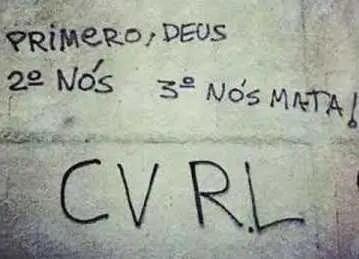 PRIMERO, DEUS
2º NÓS 3º NÓS MATA!
CV R.L